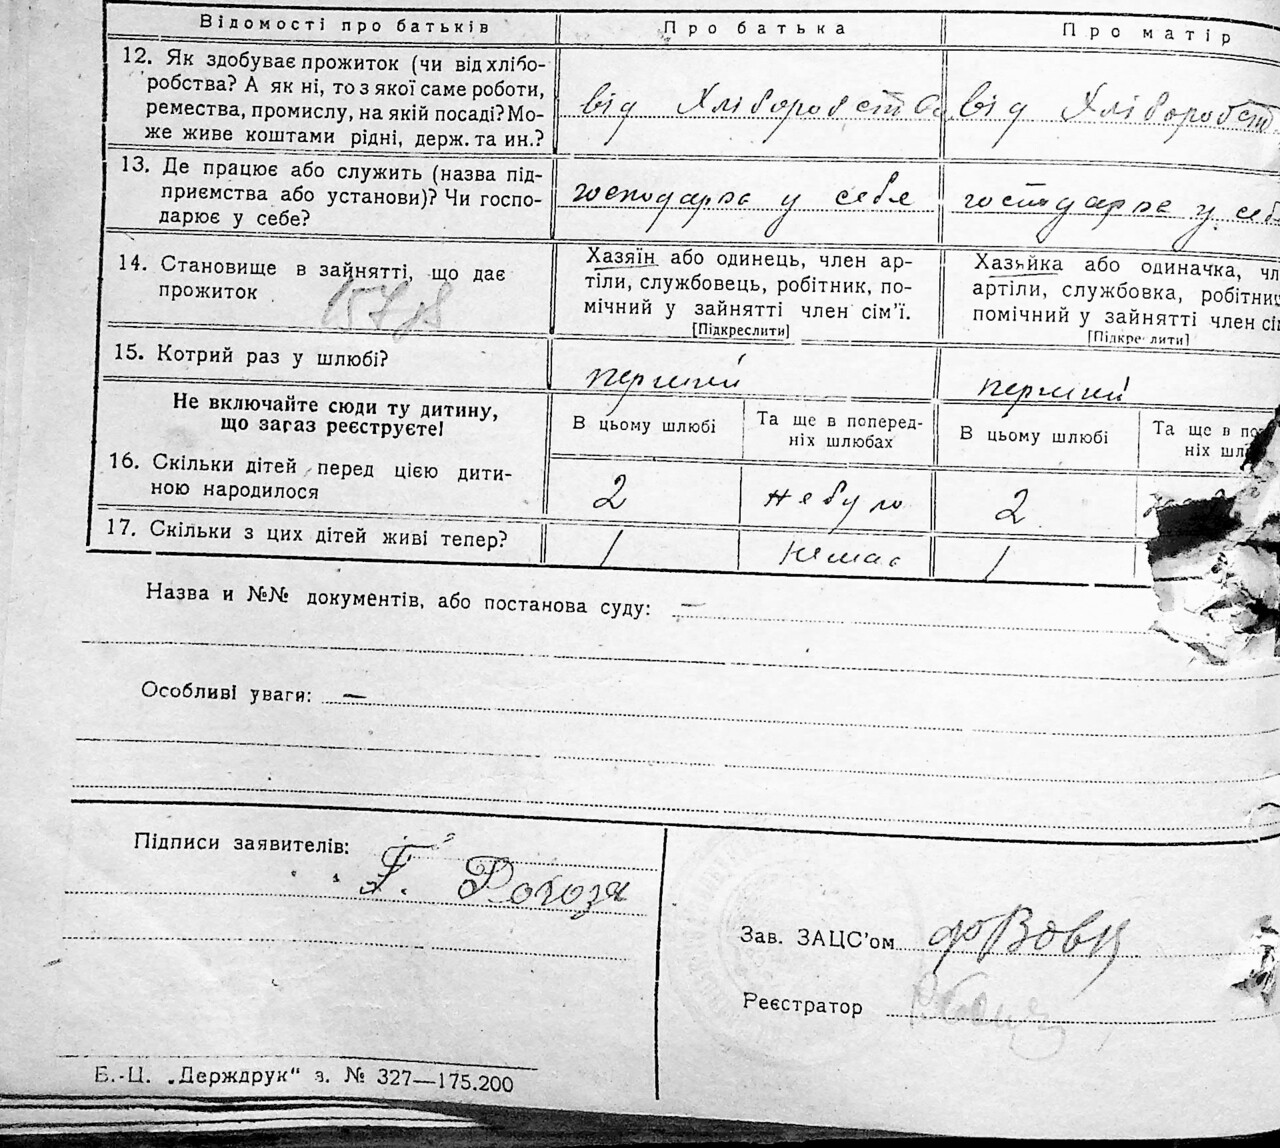 Відомості про батьків Про батька Про матір
12. Як здобуває прожиток (чи від хлібо-
робства? А як ні, то з якої саме роботи,
ремества, промислу, на якій посаді? Мо-
же живе коштами рідні, держ. та ин.?
від Хліборобства від Хліборобст
13. Де працює або служить (назва під-
приємства або установи)? Чи госпо-
дарює у себе?
господарка у себе господарка у себ
14. Становище в зайнятті, що дає
прожиток
Хазяїн або одинець, член ар-
тіли, службовець, робітник, по-
мічний у зайнятті член сім'ї.
[Підкреслити]
Хазяйка або одиначка, чл
артіли, службовка, робітниц
помічний у зайнятті член сі
[Підкреслити]
15. Котрий раз у шлюбі?
перший перший
Не включайте сюди ту дитину,
що зараз реєструєте!
В цьому шлюбі Та ще в поперед-
ніх шлюбах
В цьому шлюбі Та ще в по
ніх шлю
16. Скільки дітей перед цією дити-
ною народилося
2 не було 2
17. Скільки з цих дітей живі тепер?
1 немає 1
Назва и №№ документів, або постанова суду: —
Особливі уваги: —
Підписи заявителів:
Г. Рогоза
Зав. ЗАЦС'ом Вовк
Реєстратор
Б.-Ц. „Держдрук" з. № 327—175.200